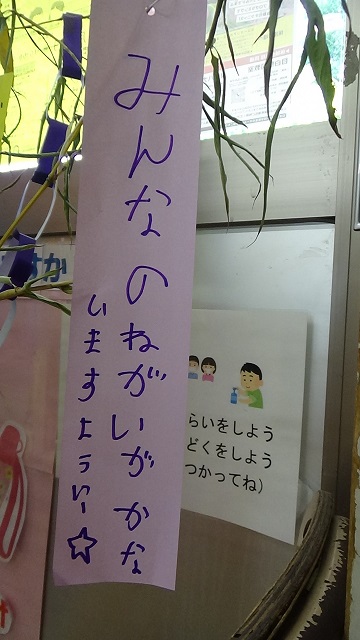 みんなのねがいがかな
いますように☆
すか
らいをしよう
どくをしよう
つかってね)